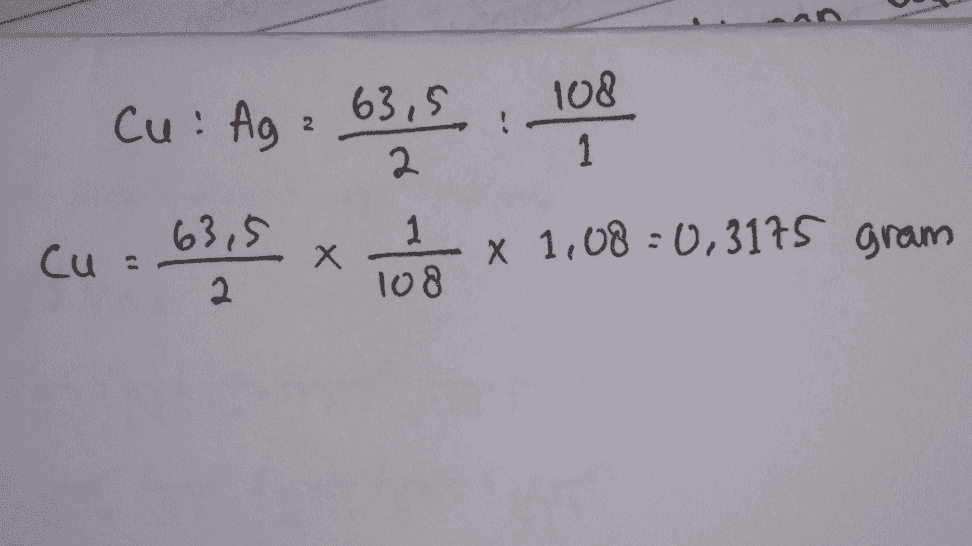 Cu : Ag = 63,5/2 : 108/1
Cu = 63,5/2 x 1/108 x 1,08 = 0,3175 gram